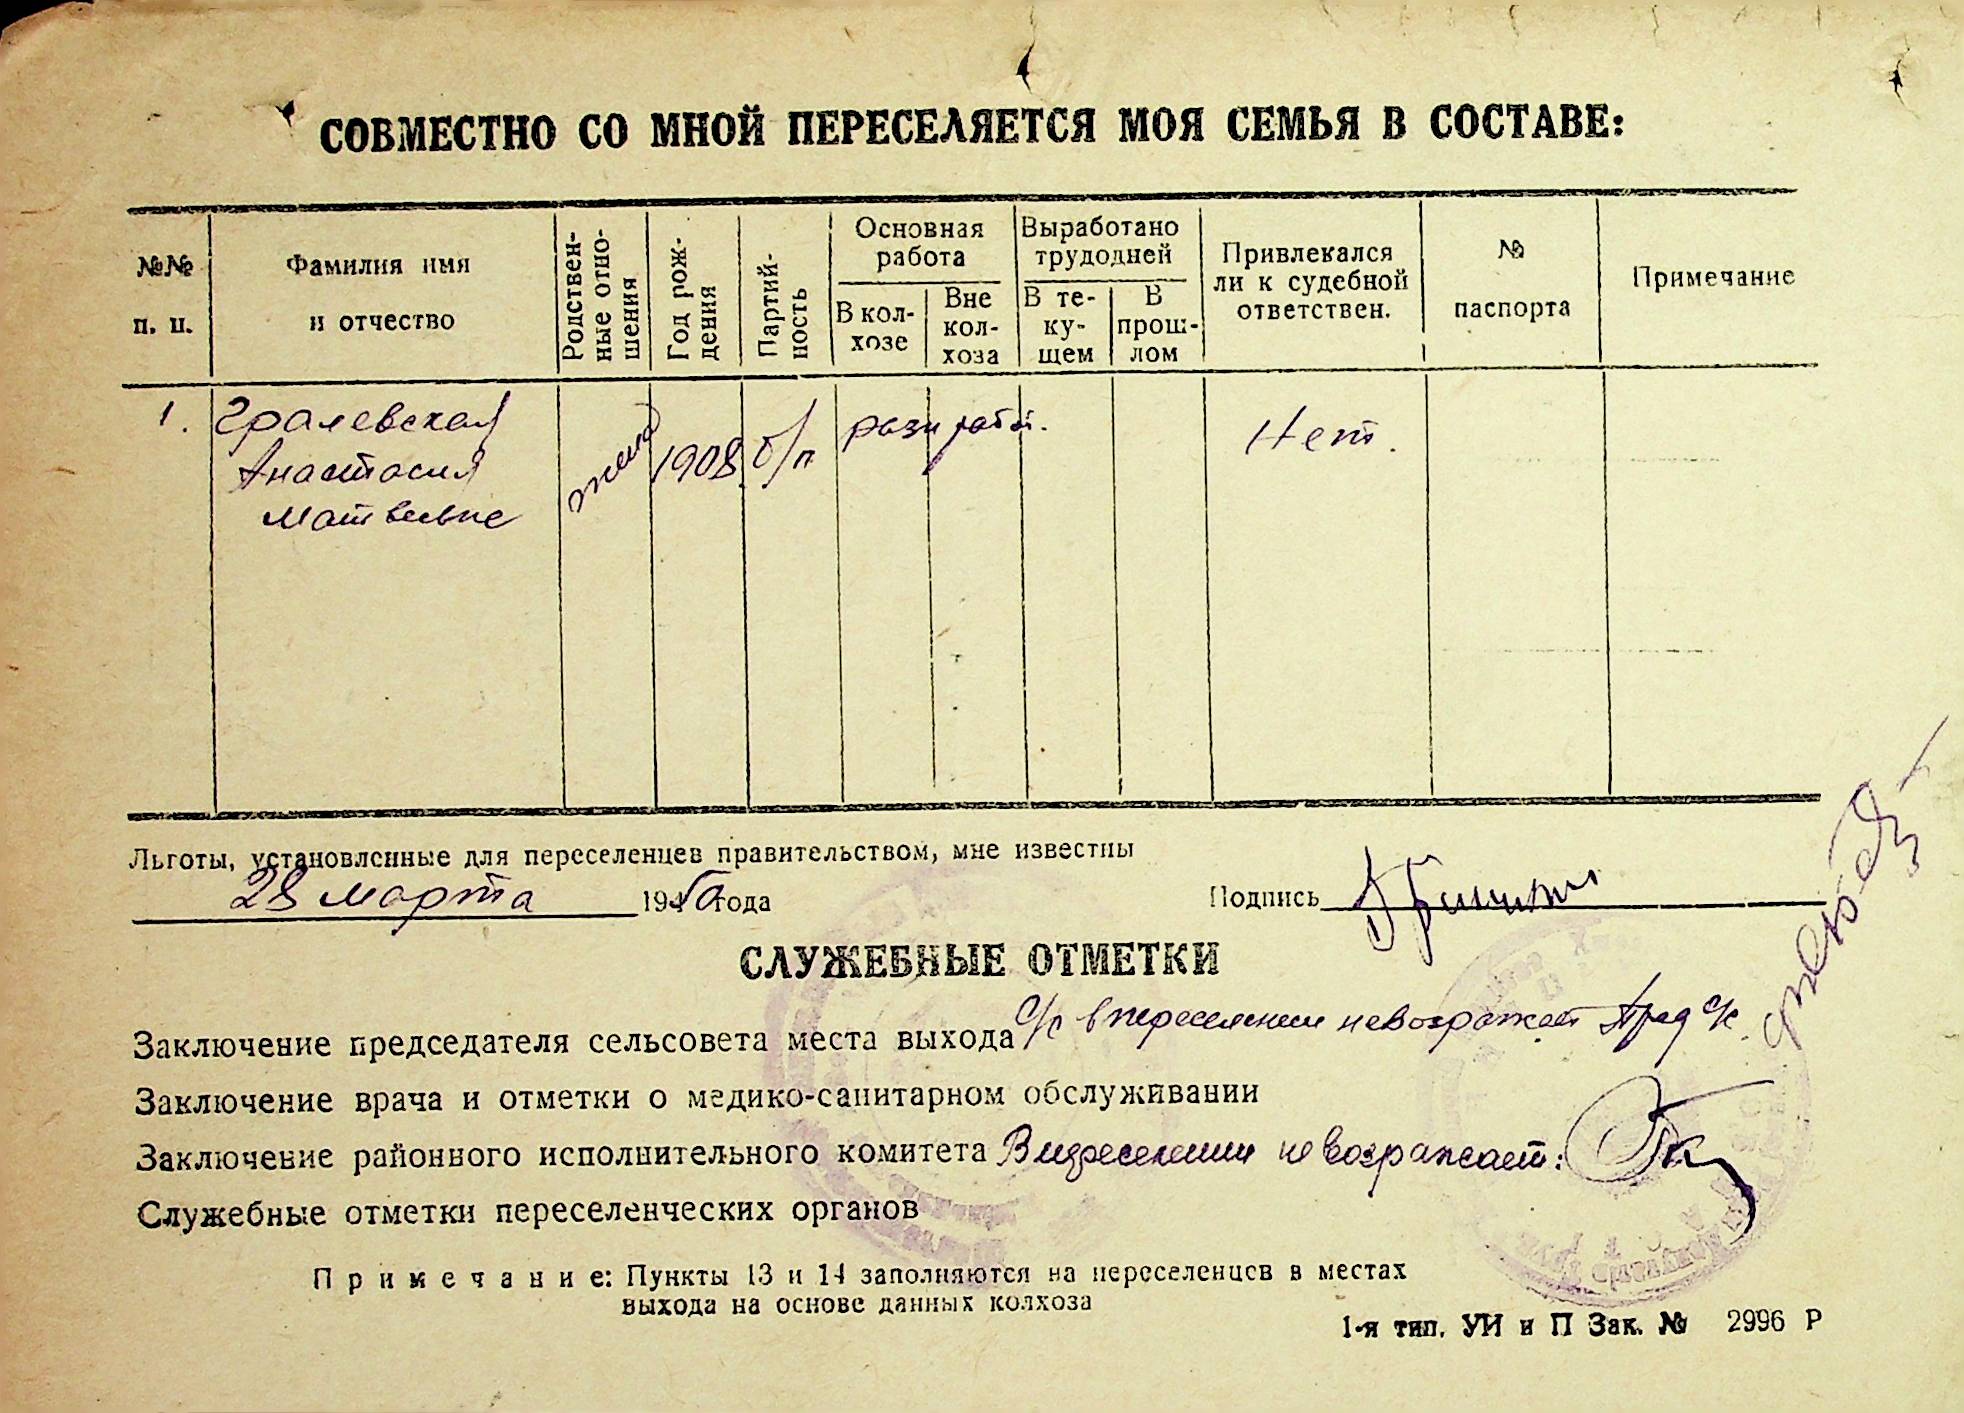 СОВМЕСТНО СО МНОЙ ПЕРЕСЕЛЯЕТСЯ МОЯ СЕМЬЯ В СОСТАВЕ:
№№ п. п.
Фамилия имя и отчество
Родствен-
ные отно-
шения
Год рож-
дения
Партий-
ность
Основная
работа
В кол-
хозе
Вне
кол-
хоза
Выработано
трудодней
В те-
ку-
щем
В
прош-
лом
Привлекался
ли к судебной
ответствен.
№
паспорта
Примечание
1. Гралевская
Анастасия
Матвевне
жена
1908
б/п
Нет.
Льготы, установленные для переселенцев правительством, мне известны
28 марта 1950 года
Подпись
СЛУЖЕБНЫЕ ОТМЕТКИ
Заключение председателя сельсовета места выхода с/с в переселении невозражает Пред с/с
Заключение врача и отметки о медико-санитарном обслуживании
Заключение районного исполнительного комитета В переселении невозражает.
Служебные отметки переселенческих органов
Примечание: Пункты 13 и 14 заполняются на переселенцев в местах
выхода на основе данных колхоза
1-я тип. УИ и П Зак. № 2996 Р